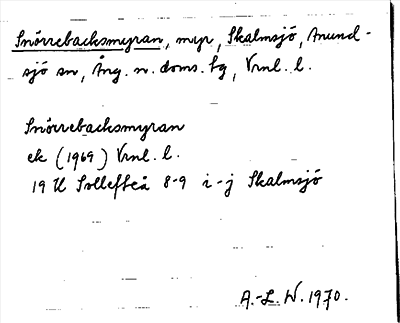 Snörrebacksmyran, myr, Skalmsjö, Anund-
sjö sn, Ång. n. doms. fg, Vrnl. l.
Snörrebacksmyran
ek (1969) Vrnl. l.
19 H Sollefteå 8-9 i-j Skalmsjö
A.-L. W. 1970.